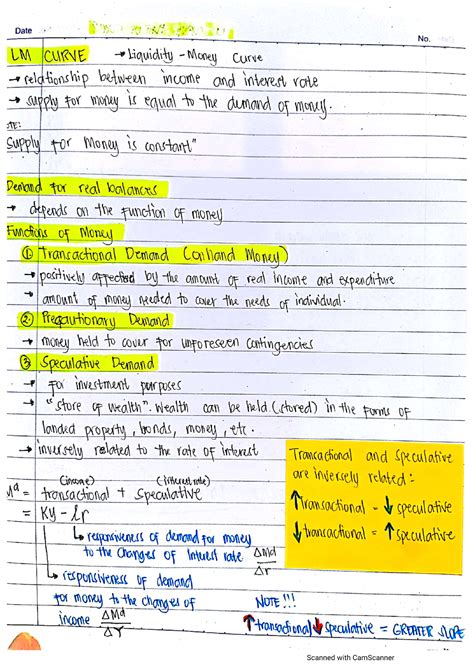 Date
No.
LM CURVE → Liquidity - Money Curve
→ relationship between income and interest rate
→ supply for money is equal to the demand of money.
TE:
Supply for Money is constant"
Demand for real balances
→ depends on the function of money
Functions of Money
① Transactional Demand (onhand Money)
→ positively affected by the amount of real income and expenditure
→ amount of money needed to cover the needs of individual.
② Precautionary Demand
→ money held to cover for unforeseen contingencies
③ Speculative Demand
→ for investment purposes
→ "store of wealth". Wealth can be held (stored) in the forms of
landed property, bonds, money, etc.
→ inversely related to the rate of interest
Transactional and speculative
are inversely related:
↑transactional = ↓ speculative
↓transactional = ↑ speculative
(income) (interest rate)
Mᵈ = transactional + speculative
= KY - lr
↳ responsiveness of demand for money
to the changes of Interest rate ΔMd/Δr
↳ responsiveness of demand
for money to the changes of
income ΔMd/ΔY
NOTE!!!
↑transactional ↓speculative = GREATER SLOPE
Scanned with CamScanner